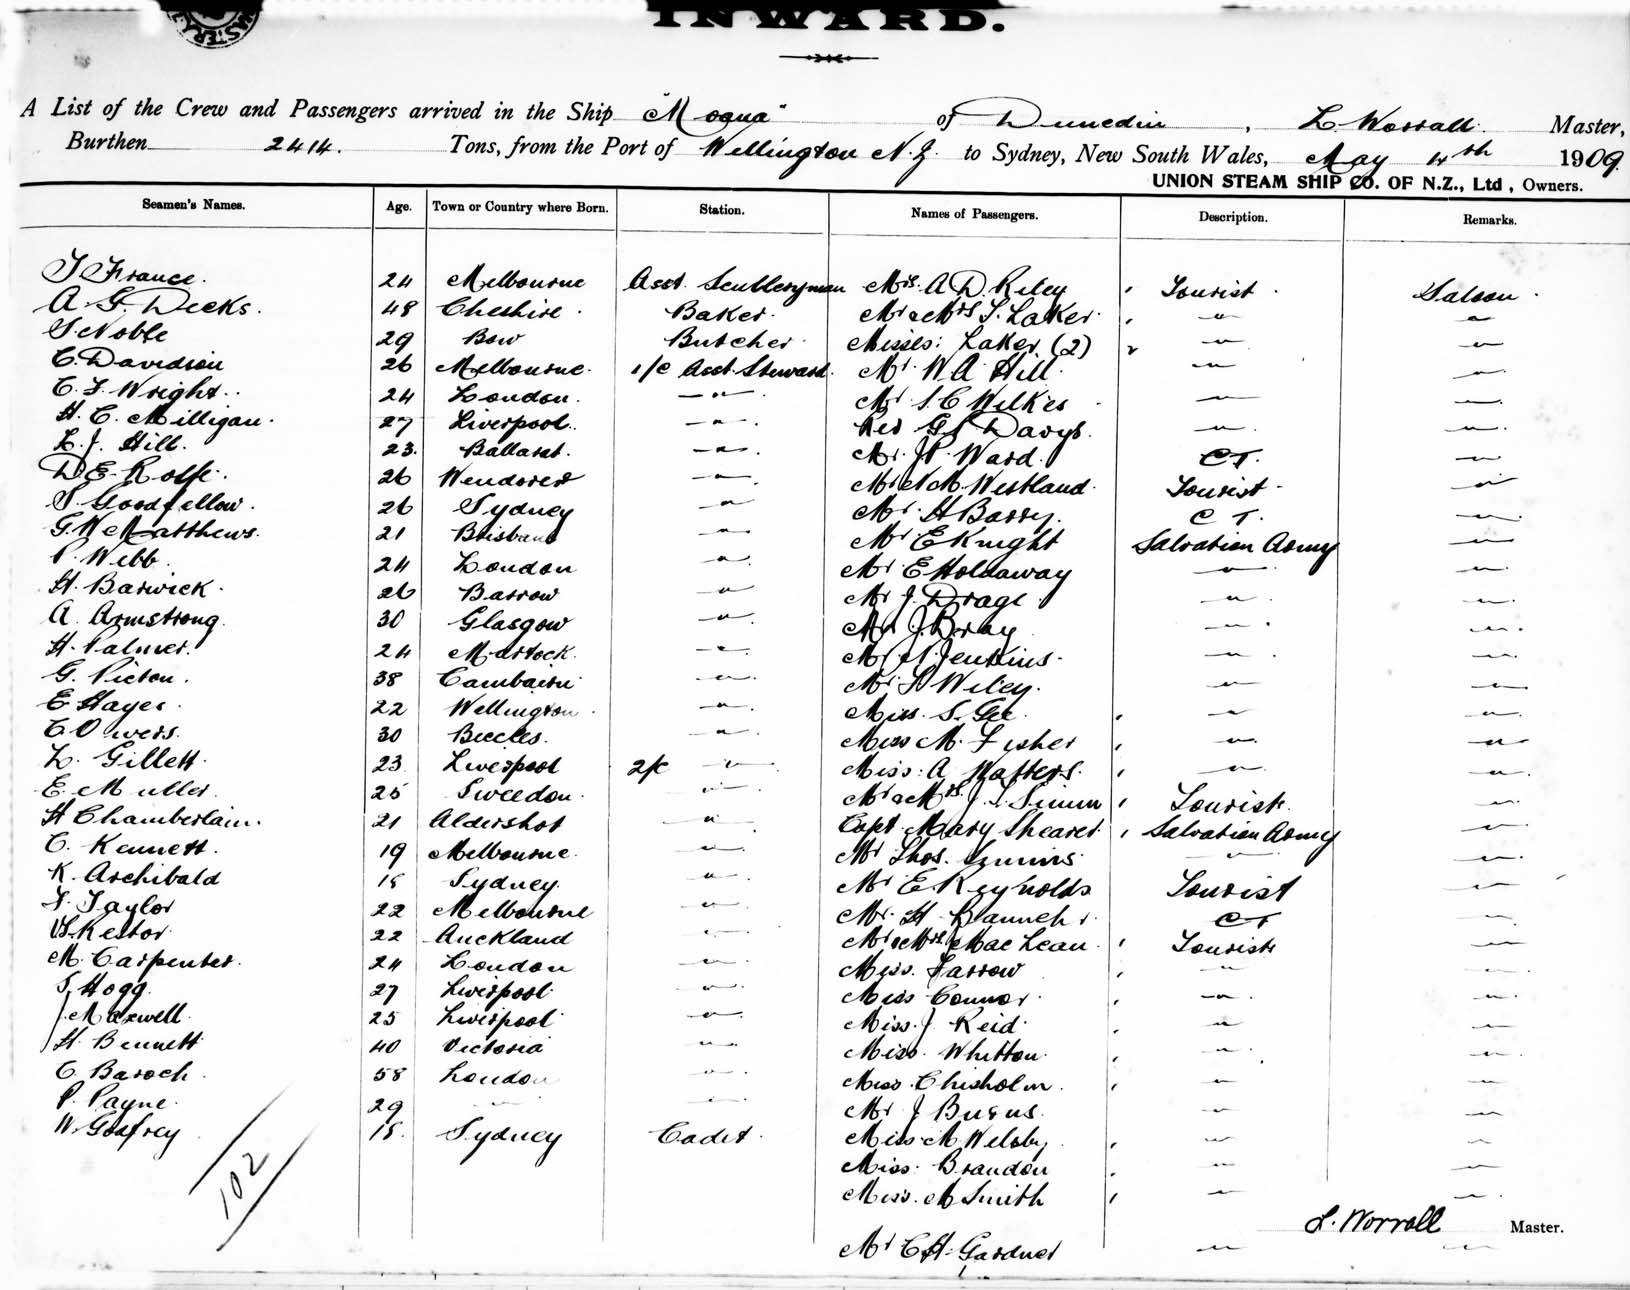 INWARD.
A List of the Crew and Passengers arrived in the Ship "Moana" of Dunedin, L. Worrall Master,
Burthen 2414. Tons, from the Port of Wellington N.Z. to Sydney, New South Wales, May 4th 1909.
UNION STEAM SHIP CO. OF N.Z., Ltd, Owners.
Seamen's Names. Age. Town or Country where Born. Station. Names of Passengers. Description. Remarks.
T. France. 24 Melbourne Asst. Sculleryman Mrs. A D. Riley Tourist. Saloon.
A. G. Deeks. 48 Cheshire. Baker. Mr & Mrs S. Laker. " "
S Noble 29 Bow Butcher. Misses: Laker (2) " "
C. Davidson 26 Melbourne. 1/c Asst. Steward. Mr. W A Hill. " "
C. F. Wright. 24 London. " Mr S. C Wilkes " "
H. C. Milligan. 27 Liverpool. " Rev G S. Davys. " "
L. J. Hill. 23. Ballarat. " Mr. J P. Ward. C T. "
D E. Rolfe. 26 Wendover " Mr N M. Westland. Tourist "
S. Goodfellow. 26 Sydney " Mr. H Barry. C T. "
G. W. Matthews. 21 Brisbane " Mr E Knight Salvation Army "
P. Webb. 24 London " Mr E Holdaway " "
H. Barwick. 26 Barrow " Mr J. Drage. " "
A. Armstrong. 30 Glasgow " Mr J. Bray " "
H. Palmer. 24 Martock. " Mr N. Jenkins. " "
G. Picton. 38 " Mr F Wiley. " "
E Hayes. 22 Wellington. " Miss. S. Gee. " "
C Owers. 30 Beccles. " Miss M. Fisher " "
L. Gillett. 23 Liverpool 2/c " Miss. A Watters. " "
E. Muller. 25 Sweedon. " Mr & Mrs. J. S. Simm Tourists. "
H Chamberlain. 21 Aldershot " Capt. Mary Shearer. Salvation Army "
C. Kennett. 19 Melbourne. " Mr Thos. " "
K. Archibald 18 Sydney. " Mr E Reynolds Tourist "
F. Taylor 22 Melbourne " Mr. H. C T "
Kestor. 22 Auckland " Mr & Mrs. MacLean. Tourists "
M. Carpenter. 24 London " Miss. Farrow " "
S. Hogg. 27 Liverpool. " Miss Connor. " "
J. Maxwell. 25 Liverpool. " Miss. J. Reid. " "
H. Bennett 40 Victoria " Miss. Whitton. " "
C. Baroch. 58 London " Miss. Chisholm. " "
P. Payne. 29 " " Mr J Burns. " "
W. Godfrey 18. Sydney Cadet. Miss M Welsby. " "
Miss. Brandon " "
102
Miss. M Smith " "
L. Worrall Master.
Mr C H. Gardner " "